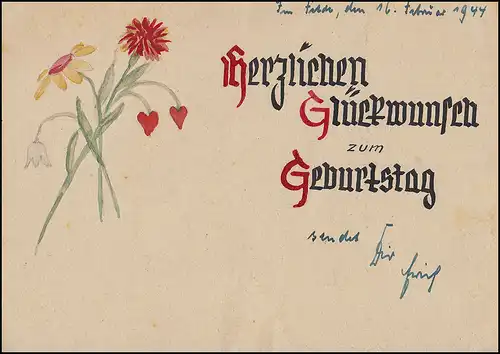 Im Felde, den 16. Februar 1944
Herzlichen
Glückwunsch
zum
Geburtstag
sendet Dir
Erich